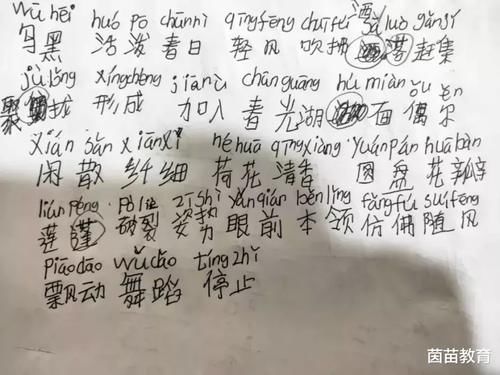 wū hēi huó pō chūn rì qīng fēng chuī fú 洒 sǎ luò gǎn jí
乌黑 活泼 春日 轻风 吹拂 落 赶集
jù lǒng xíng chéng jiā rù chūn guāng hú miàn ǒu ěr
聚拢 形成 加入 春光 湖面 偶尔
xián sǎn xiān xì hé huā qīng xiāng yuán pán huā bàn
闲散 纤细 荷花 清香 圆盘 花瓣
lián peng pò liè zī shì yǎn qián běn lǐng fǎng fú suí fēng
莲蓬 破裂 姿势 眼前 本领 仿佛 随风
piāo dào wǔ dǎo tíng zhǐ
飘动 舞蹈 停止
茵苗教育